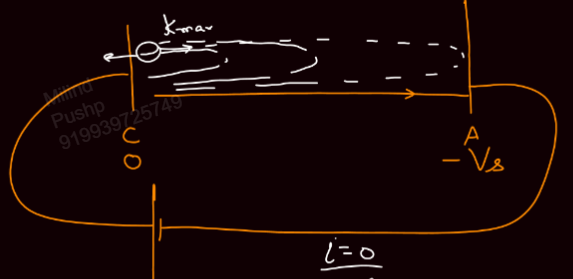 Kmax
Milind
Pushp
919939725749
C
A
O
- Vs
i = 0